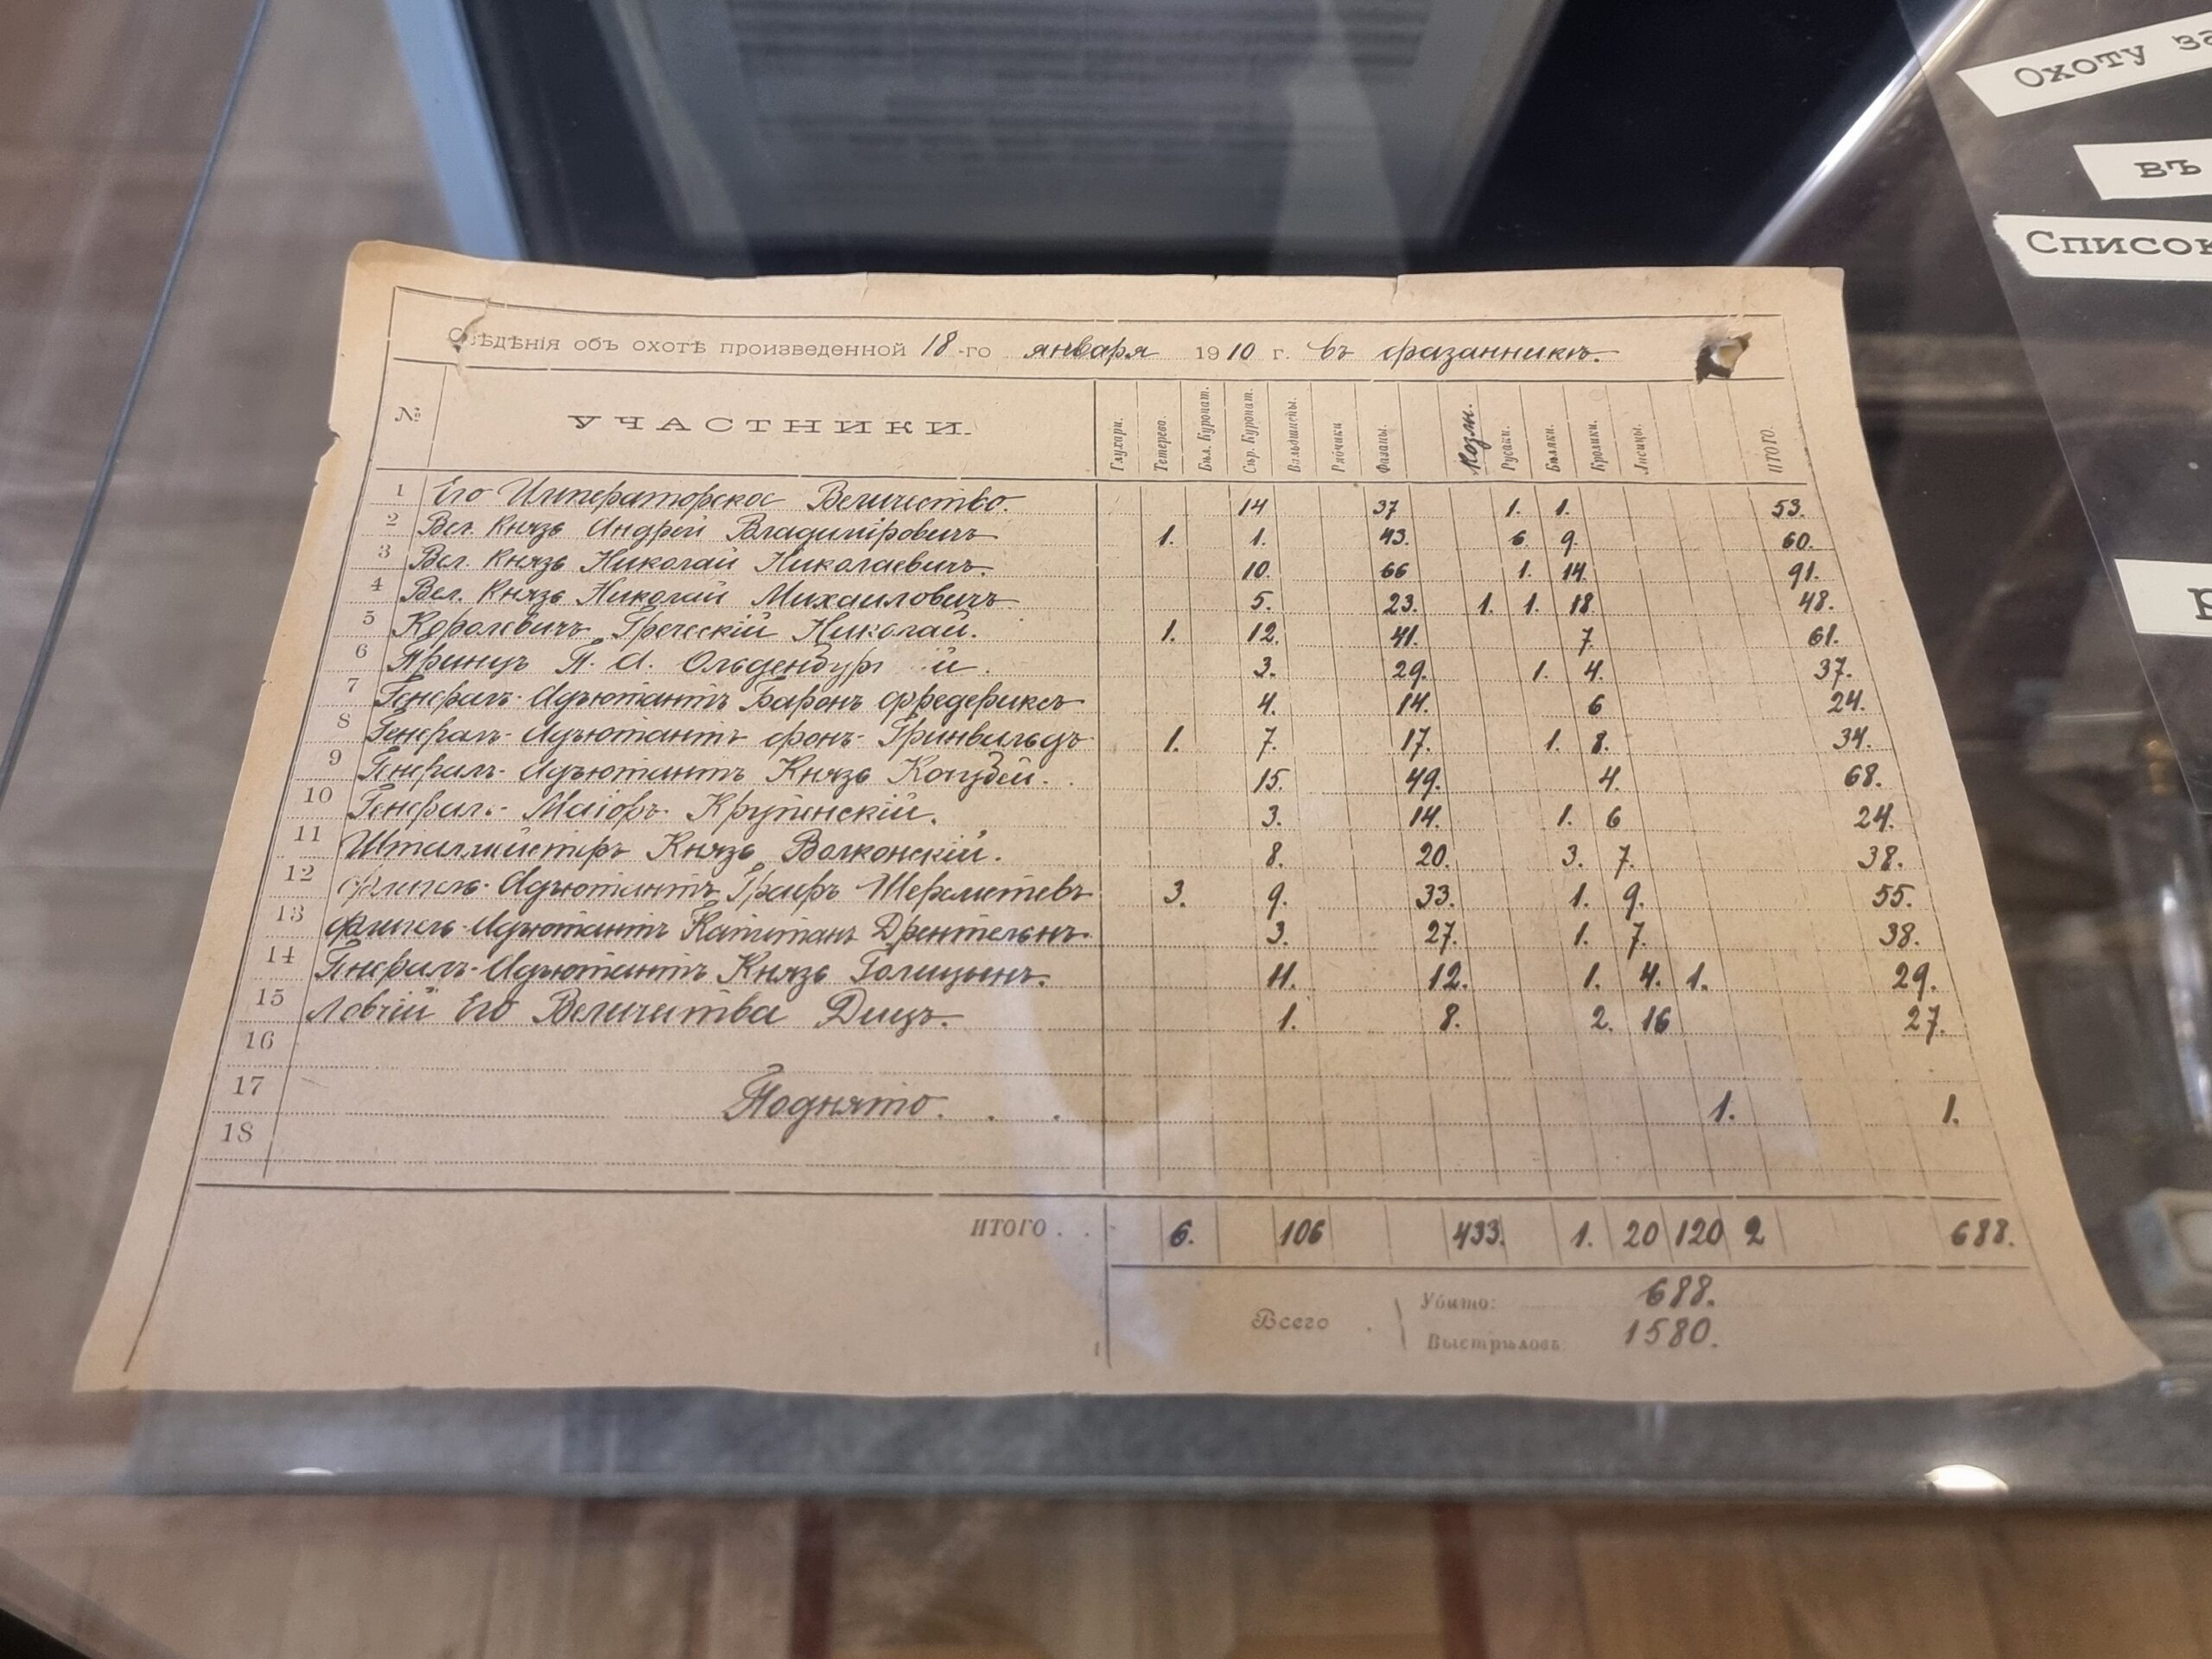 Охоту за
въ
Список
Свѣдѣнія объ охотѣ произведенной 18-го января 1910 г. въ фазанникѣ.
№ УЧАСТНИКИ. Глухари. Тетерева. Бѣл. Куропат. Сѣр. Куропат. Вальдшнепы. Рябчики Фазаны. Козлы. Русаки. Бѣляки. Кролики. Лисицы. ИТОГО.
1 Его Императорское Величество. 14 37 1. 1. 53.
2 Вел. Князь Андрей Владиміровичъ 1. 1. 43. 6. 9. 60.
3 Вел. Князь Николай Николаевичъ. 10. 66 1. 14. 91.
4 Вел. Князь Николай Михаиловичъ 5. 23. 1. 1. 18. 48.
5 Королевичъ Греческій Николай. 1. 12. 41. 7. 61.
6 Принцъ П. А. Ольденбург й. 3. 29. 1. 4. 37.
7 Генералъ-Адъютантъ Баронъ Фредериксъ 4. 14. 6 24.
8 Генералъ-Адъютантъ фонъ-Гринвальдъ 1. 7. 17. 1. 8. 34.
9 Генералъ-Адъютантъ Князь Кочубей. 15. 49. 4. 68.
10 Генералъ-Маіоръ Крупенскій. 3. 14. 1. 6 24.
11 Шталмейстеръ Князь Волконскій. 8. 20. 3. 7. 38.
12 Флигель-Адъютантъ Графъ Шереметевъ 3. 9. 33. 1. 9. 55.
13 Флигель-Адъютантъ Капитанъ Дрентельнъ. 3. 27. 1. 7. 38.
14 Генералъ-Адъютантъ Князь Голицынъ. 11. 12. 1. 4. 1. 29.
15 Ловчій Его Величества Дицъ. 1. 8. 2. 16 27.
16
17 Поднято. . . 1. 1.
18
ИТОГО . . 6. 106 433. 1. 20 120 2 688.
Всего . Убито: 688.
Выстрѣловъ: 1580.